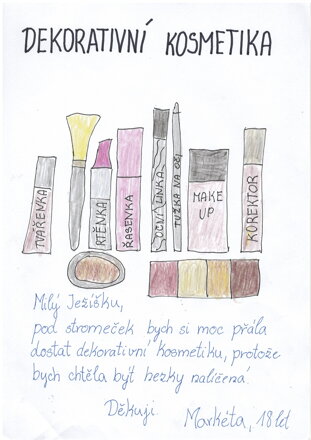 DEKORATIVNÍ KOSMETIKA
TVÁŘENKA
RTĚNKA
ŘASENKA
OČNÍ LINKA
TUŽKA NA OČI
MAKE
UP
KOREKTOR
Milý Ježíšku,
pod stromeček bych si moc přála
dostat dekorativní kosmetiku, protože
bych chtěla být hezky nalíčená.
Děkuji
Markéta, 18 let